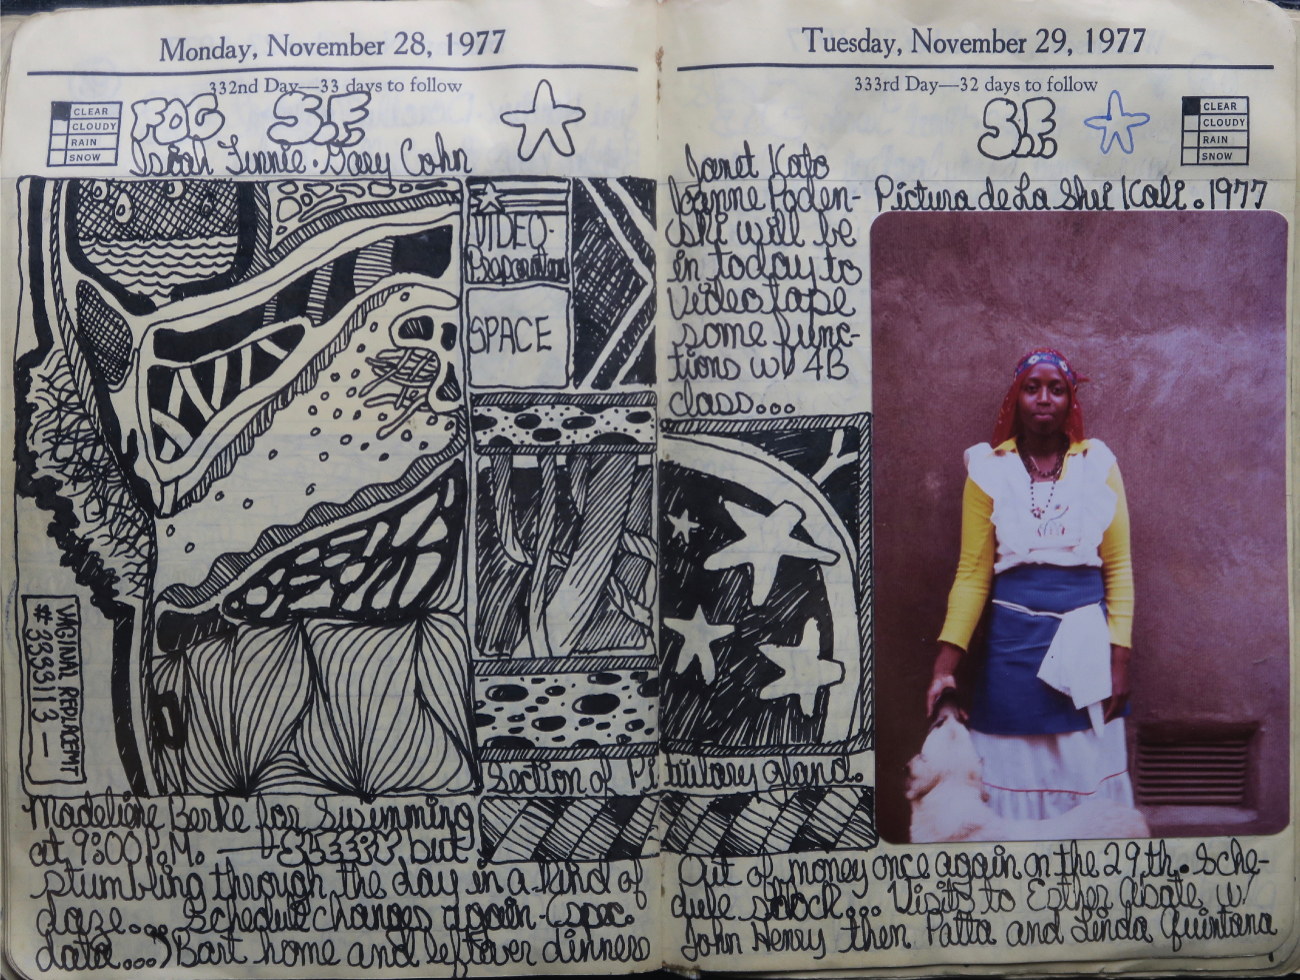 Monday, November 28, 1977
332nd Day—33 days to follow
CLEAR
CLOUDY
RAIN
SNOW
FOG S.F.
Isiah Tinnie · Gary Cohn
VIDEO-
Preparation
SPACE
VAGINAL REPLACEMT
#3333113 —
Section of Pituitary gland.
Madeline Berke for Swimming
at 9:00 P.M. but
stumbling through the day in a kind of
daze... Schedule changes again (spec.
data...) Bart home and leftover dinners
Tuesday, November 29, 1977
333rd Day—32 days to follow
S.F.
CLEAR
CLOUDY
RAIN
SNOW
Janet Kofo
Joanne Poden-
ski will be
in today to
video tape
some func-
tions w/ 4B
class...
Pictura de La Shri Kali. 1977
Out of money once again on the 29th. Sche-
dule shock... Visits to Esther w/
John Henry then Patta and Linda Quintana